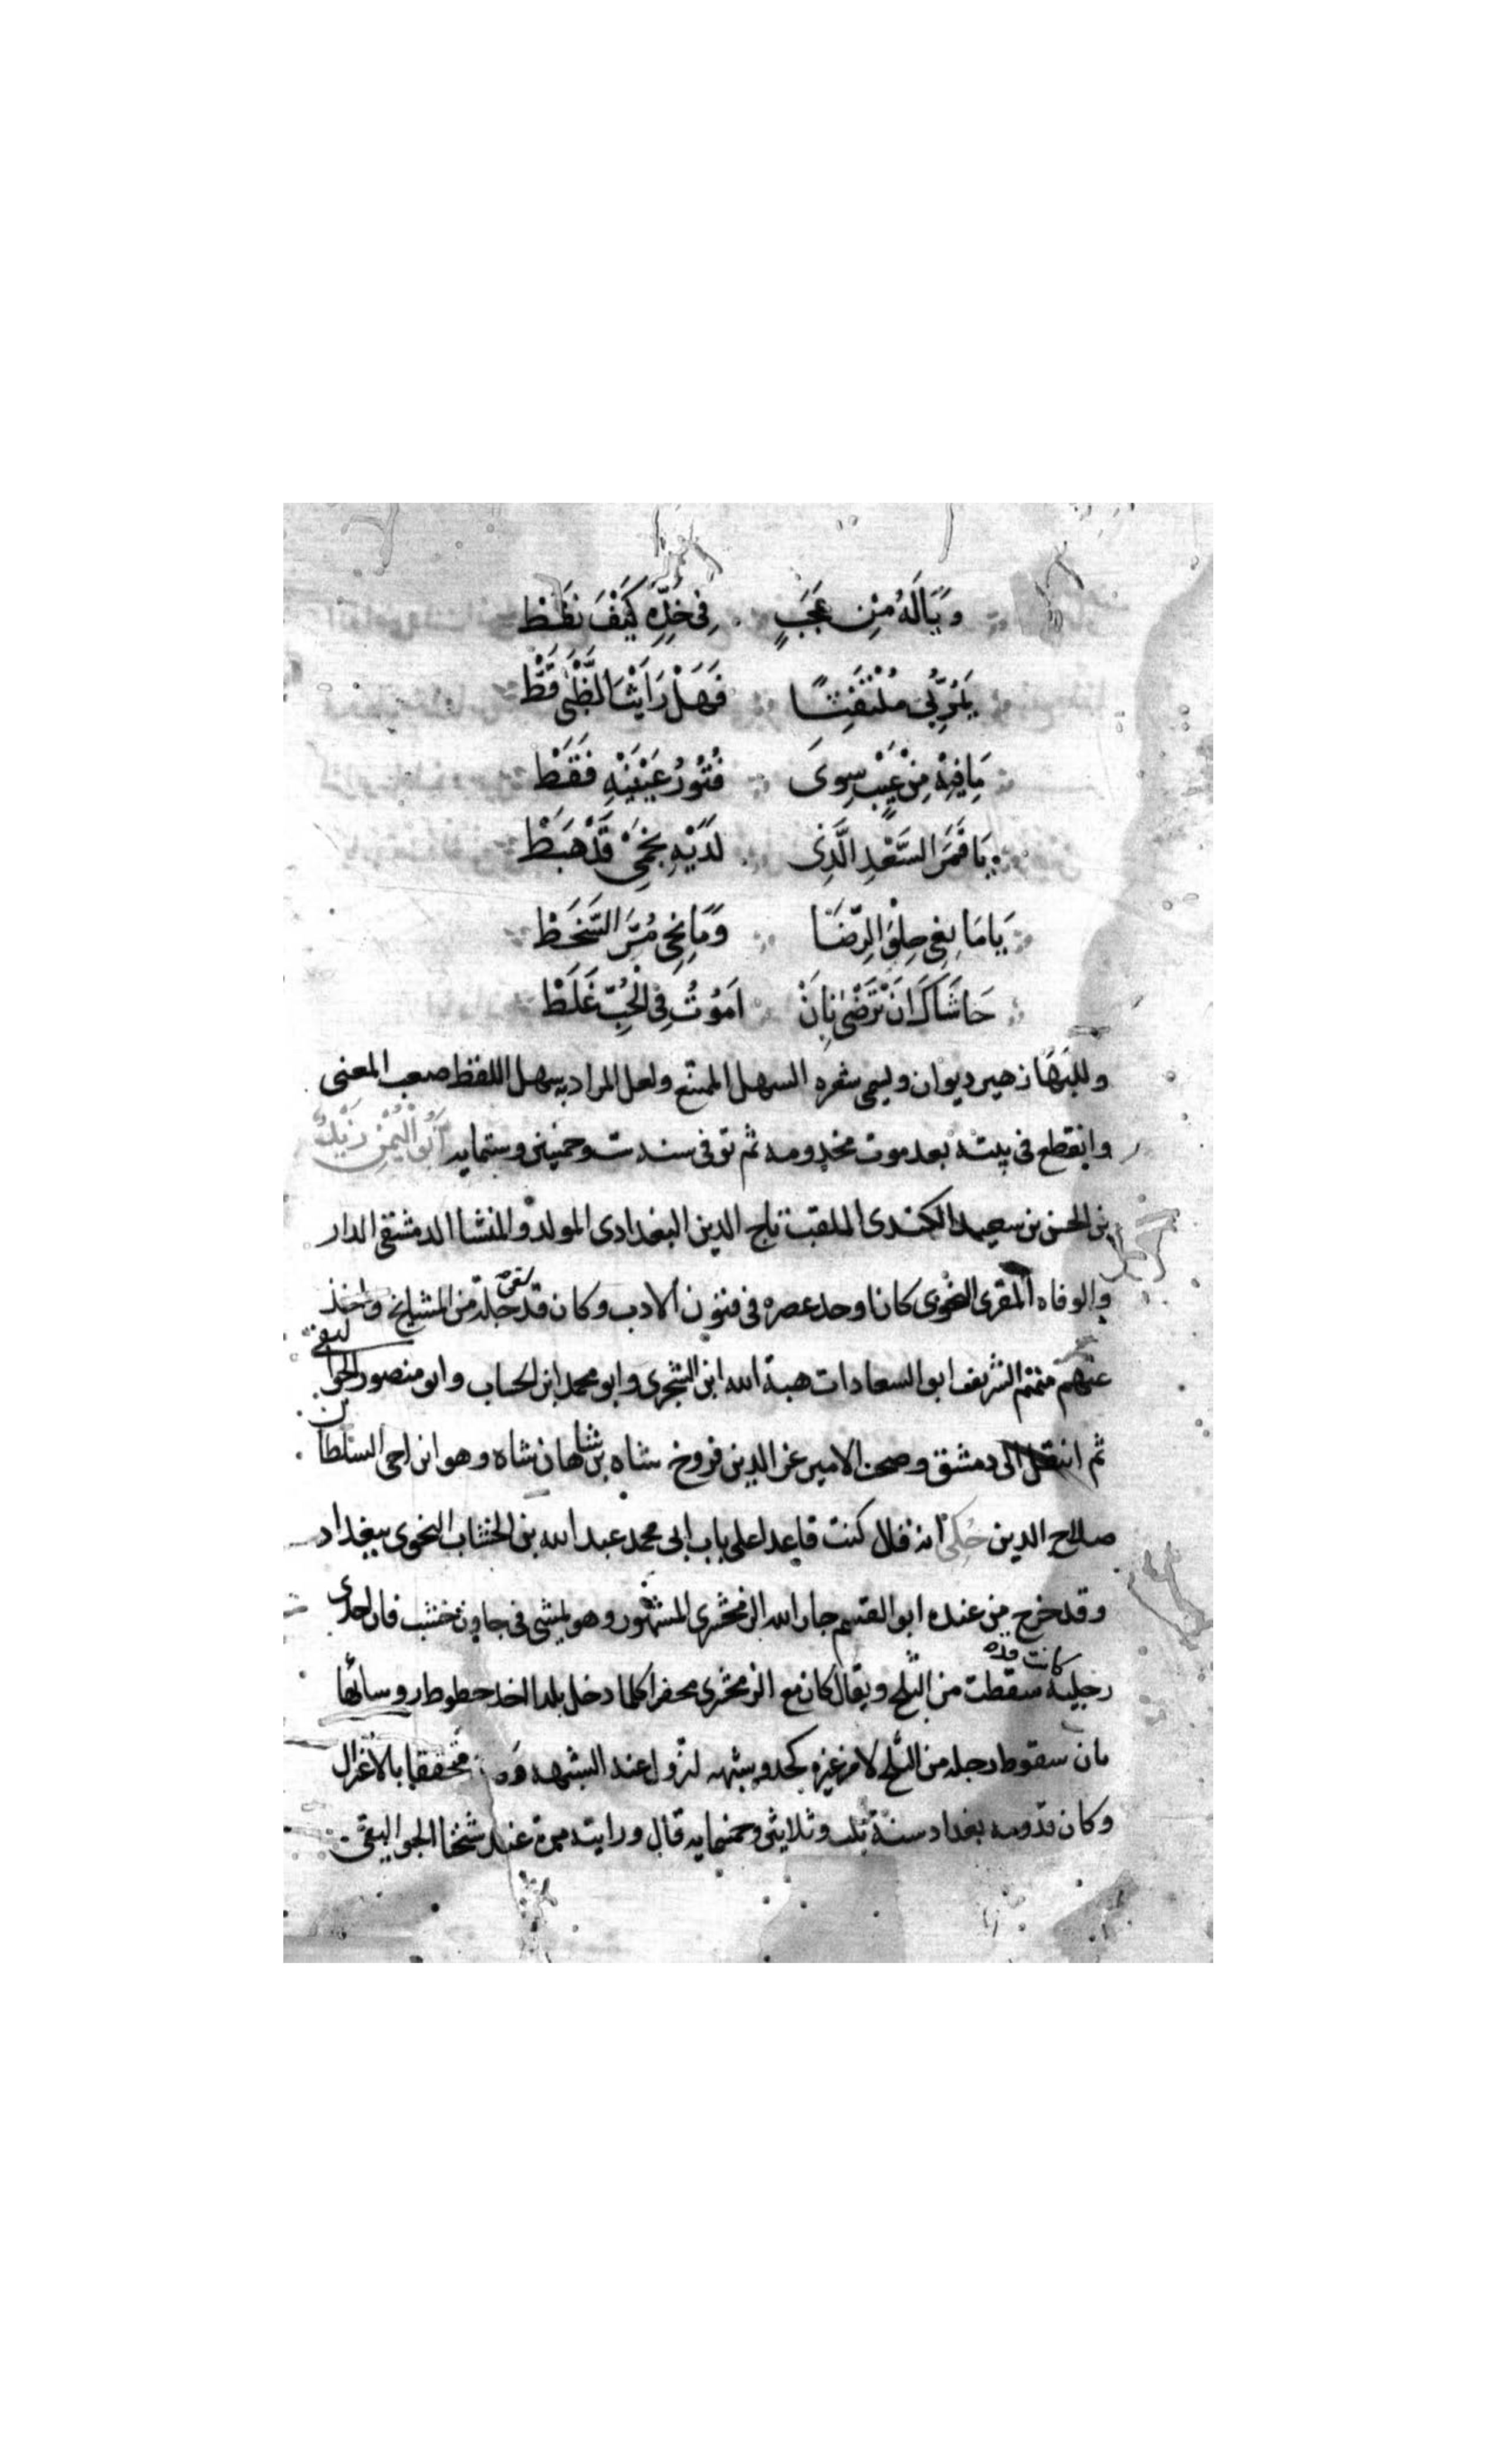 وَيَالَهُ مِنْ عَجَبٍ فِى خَدِّهِ كَيْفَ نَقَطْ
يَمُرُّ بِى مُلْتَفِتًا فَهَلْ رَاَيْتَ الظَّبْىَ قَطْ
مَا فِيْهِ مِنْ عَيْبٍ سِوَى فُتُوْرُ عَيْنَيْهِ فَقَطْ
يَا قَمَرَ السَّعْدِ الَّذِى لَدَيْهِ نَجْمِى قَدْ هَبَطْ
يَا مَانِعِى حِلْوَ الرِّضَا وَمَانِحِى مُرَّ السَّخَطْ
حَاشَاكَ اَنْ تَرْضَى بِاَنْ اَمُوْتُ فِى الْحُبِّ غَلَطْ
وللبَهَا زهير ديوان ويسمى شعره السهل الممتنع ولعل المراد به سهل اللفظ صعب المعنى
وانقطع فى بيته بعد موت مخدومه ثم توفى سنة ست وخمسين وستمايه أَبُو الْيُمْنِ زَيْدُ
بن الحسن بن سعيد الكندى الملقب تاج الدين البغدادى المولد والمنشا الدمشقى الدار
والوفاه المقرى النحوى كان اوحد عصره فى فنون الادب وكان قد لقى جلة من المشايخ واخذ
عنهم منهم الشريف ابو السعادات هبة الله ابن الشجرى وابو محمد ابن الخشاب وابو منصور الجواليقى
ثم انتقل الى دمشق وصحب الامير عز الدين فروخ شاه بن شاهان شاه وهو ابن اخى السلطان
صلاح الدين حُكِىَ انه قال كنت قاعدا على باب ابى محمد عبد الله بن الخشاب النحوى ببغداد
وقد خرج من عنده ابو القسم جار الله الزمخشرى المشهور وهو يمشى فى جاون خشب فان احدى
رجليه كانت سقطت من الثلج ويقال كان مع الزمخشرى محضرا كلما دخل بلدا اخذ خطوط روسائها
بان سقوط رجله من الثلج لا من غيره لزول عند الشهه محققا بالاغزال
وكان قدومه بغداد سنة ثلث وثلاثين وخمسمايه قال ورايته مرة عند شخنا الجواليقى